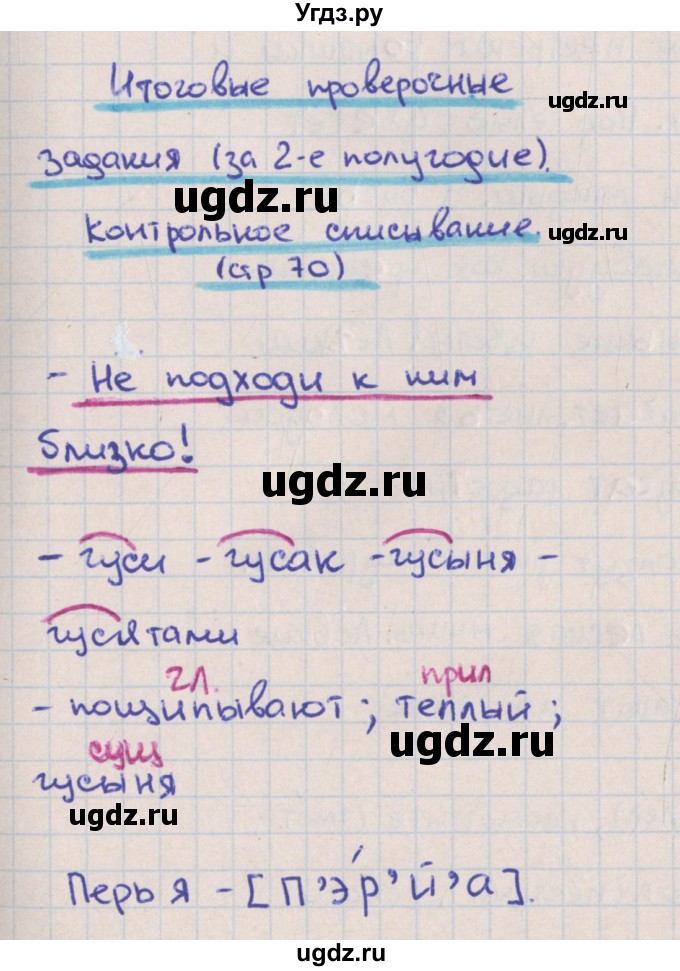 Угдз.ру
Итоговые проверочные
ugdz.ru
задания (за 2-е полугодие).
ugdz.ru
Контрольное списывание.
ugdz.ru
(стр 70)
- Не подходи к ним
близко!
ugdz.ru
- гуси - гусак - гусыня -
гусятами
гл. прил
- пощипывают; теплый;
ugdz.ru
сущ
гусыня
ugdz.ru
Перья - [П’э́р’й’а].
ugdz.ru